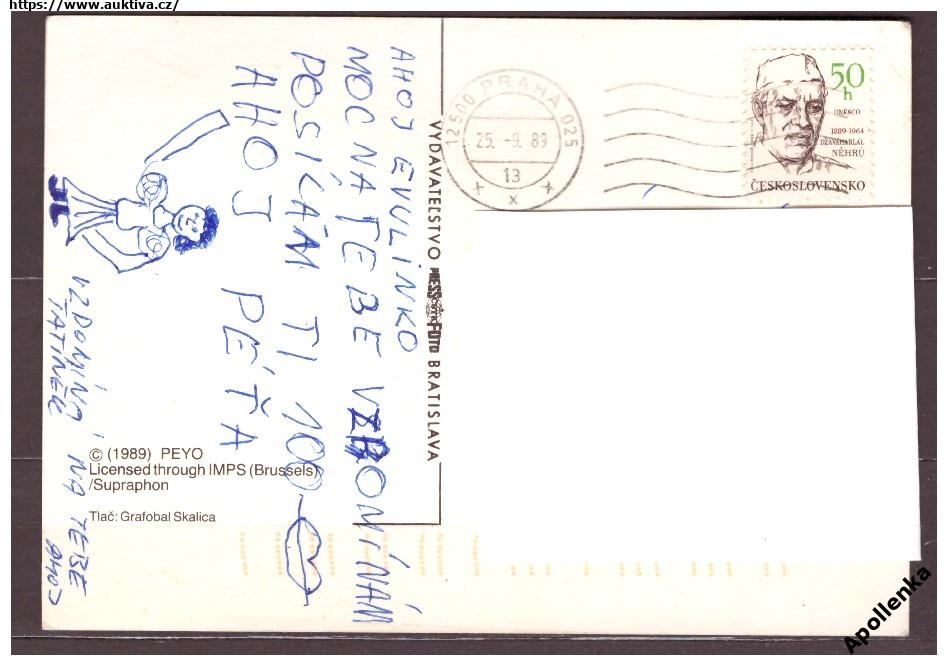 https://www.auktiva.cz/
AHOJ EVULINKO
MOC NA TEBE VZPOMÍNÁM
POSÍLÁM TI 100
AHOJ PÉŤA
VZPOMÍNÁ I NA TEBE
TATÍNEK AHOJ
© (1989) PEYO
Licensed through IMPS (Brussels)
/Supraphon
Tlač: Grafobal Skalica
VYDAVATEĽSTVO PRESSFOTO BRATISLAVA
12500 PRAHA 025
25. -9. 89
13
x
50
h
UNESCO
1889-1964
DŽAVÁHARLÁL
NÉHRÚ
ČESKOSLOVENSKO
Apollenka